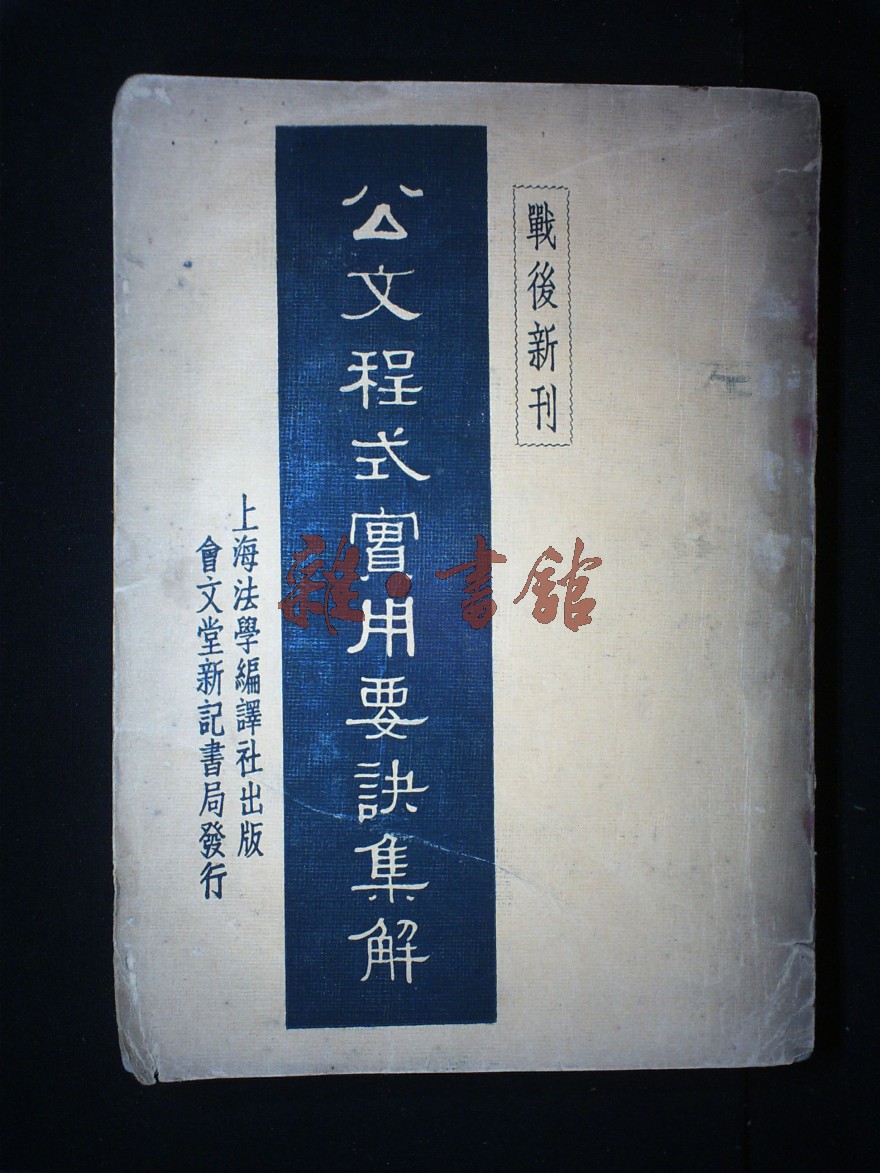 戰後新刊
公文程式實用要訣集解
上海法學編譯社出版
會文堂新記書局發行
雜·書館